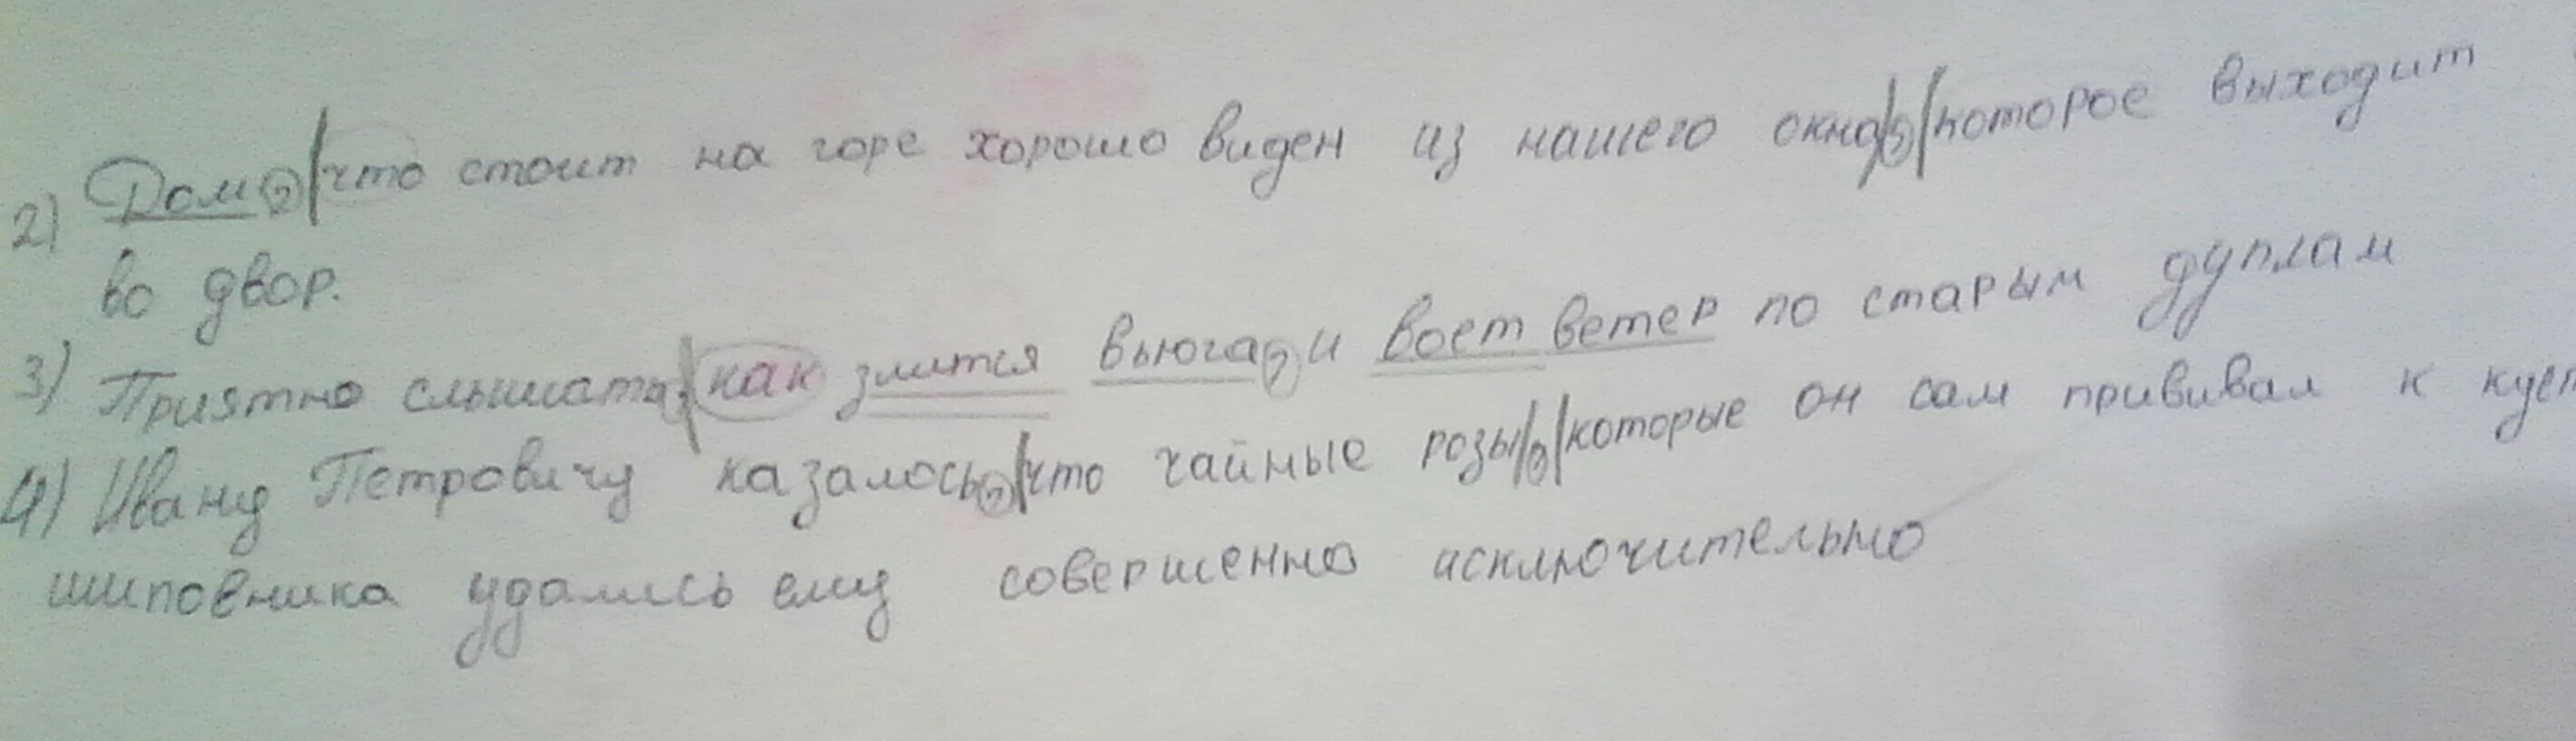 2) Дом, что стоит на горе хорошо виден из нашего окна, которое выходит
во двор.
3) Приятно слышать, как злится вьюга, и воет ветер по старым дуплам
4) Ивану Петровичу казалось, что чайные розы, которые он сам прививал к куст
шиповника удались ему совершенно исключительно